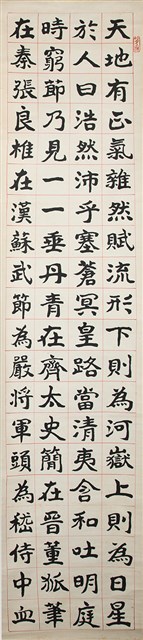 天地有正氣雜然賦流形下則為河嶽上則為日星
於人曰浩然沛乎塞蒼冥皇路當清夷含和吐明庭
時窮節乃見一一垂丹青在齊太史簡在晉董狐筆
在秦張良椎在漢蘇武節為嚴将軍頭為嵇侍中血